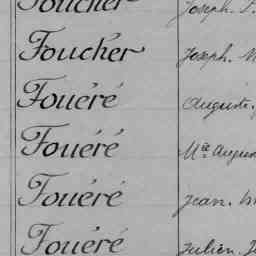 Foucher Joseph.
Foucher Joseph.
Fouéré Auguste.
Fouéré Mie August
Fouéré Jean.
Fouéré Julien.